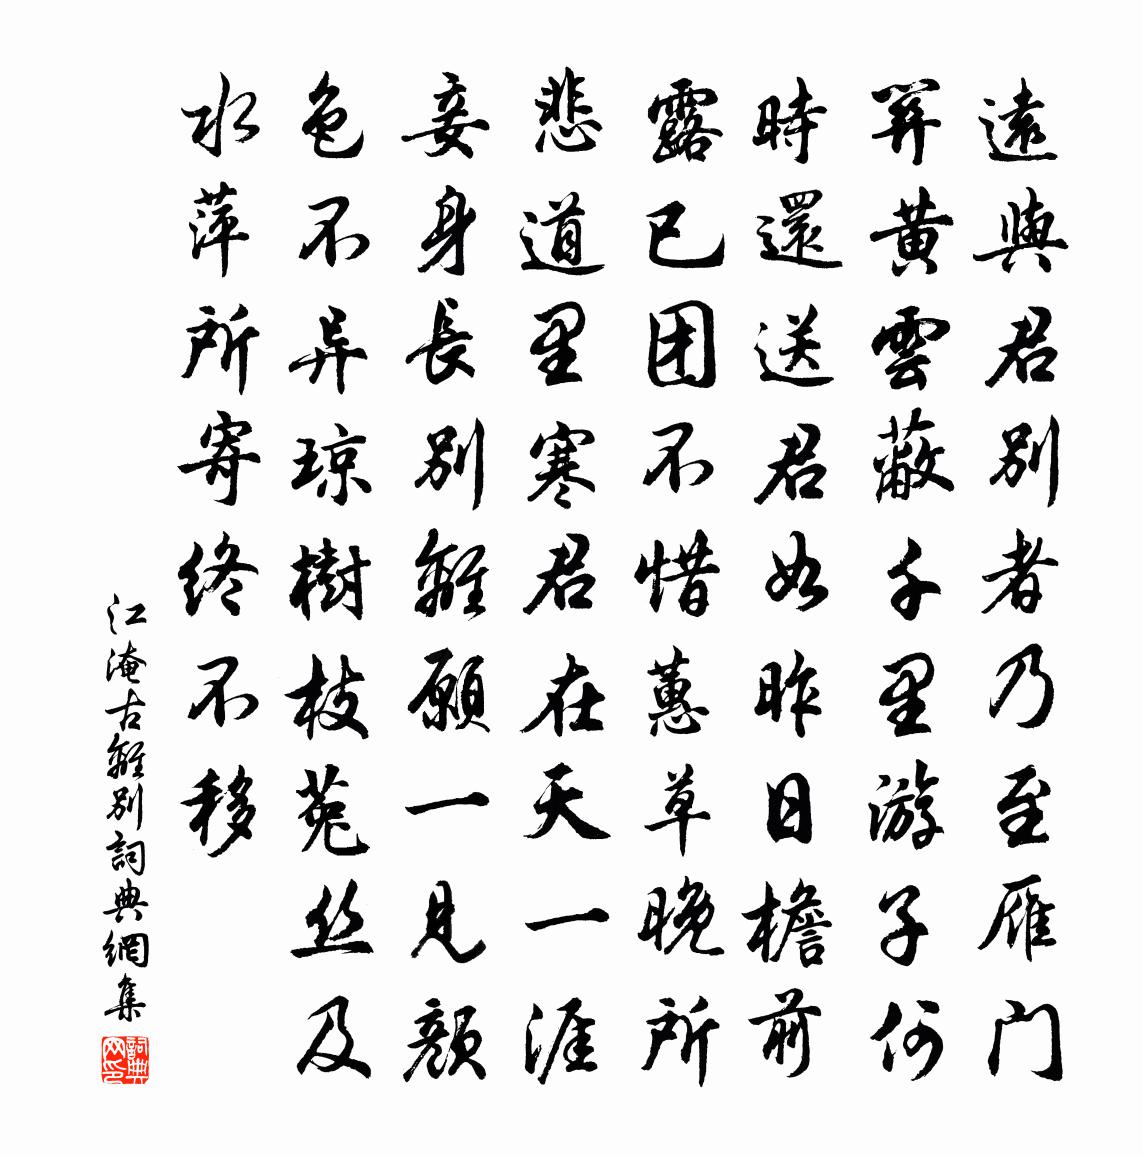 遠與君別者乃至雁门
關黄雲蔽千里游子何
時還送君如昨日檐前
露已团不惜蕙草晚所
悲道里寒君在天一涯
妾身長別離願一見顔
色不异琼樹枝菟丝及
水萍所寄終不移
江淹古離別詞典網集
詞典网印